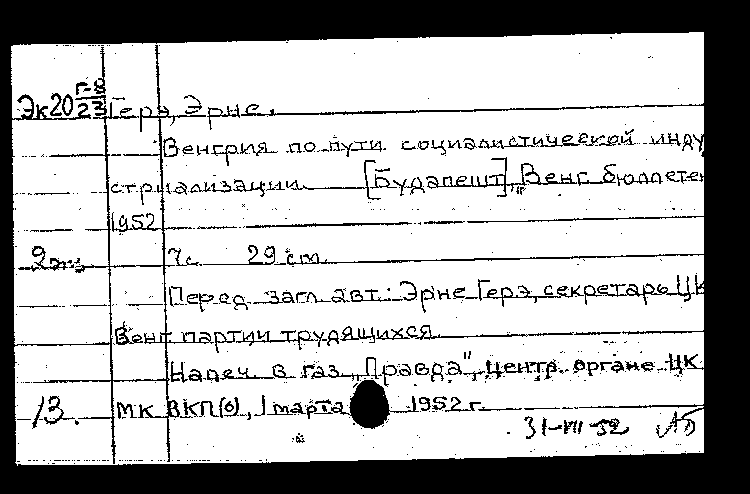 Эк20 Г-9/23 Герэ, Эрне.
Венгрия по пути социалистической инду
стриализации [Будапешт], "Венг бюллетен
1952
2 экз 7с. 29 см.
Перед загл. авт.: Эрне Герэ, секретарь ЦК
Венг. партии трудящихся.
Напеч. в газ „Правда", центр. органе ЦК
13. МК ВКП(б), 1 марта 1952 г.
31-VII-52 АБ